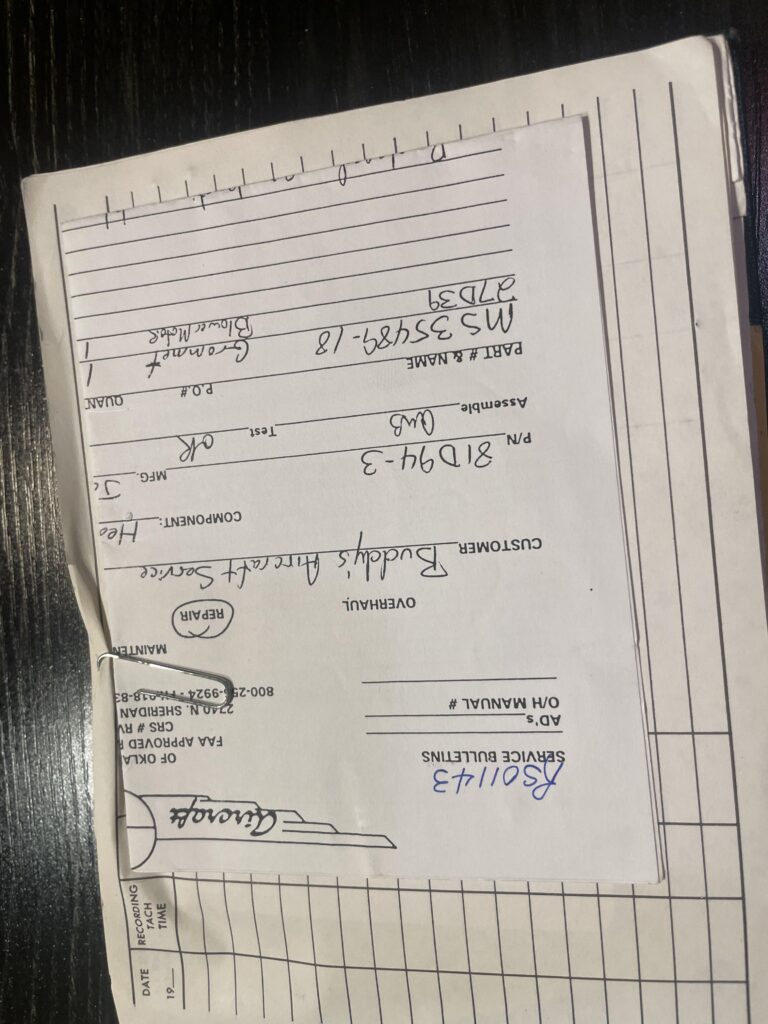 Aircraft
OF OKLA
FAA APPROVED
CRS # RV
2740 N. SHERIDAN
800-255-9924
MAINTEN
RS01143
SERVICE BULLETINS
AD's
O/H MANUAL #
OVERHAUL REPAIR
CUSTOMER Buddy's Aircraft Service
COMPONENT: Hea
P/N 81D94-3 MFG. Ja
Assemble Test OK
P.O.#
PART # & NAME QUAN
MS35489-18 Grommet 1
27D39 Blower Motor 1
DATE RECORDING TACH TIME
19